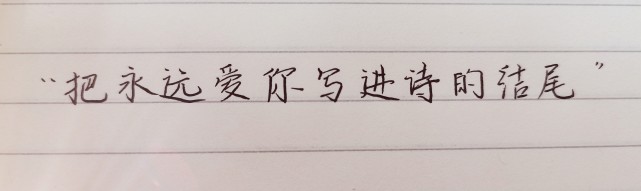 “把永远爱你写进诗的结尾”